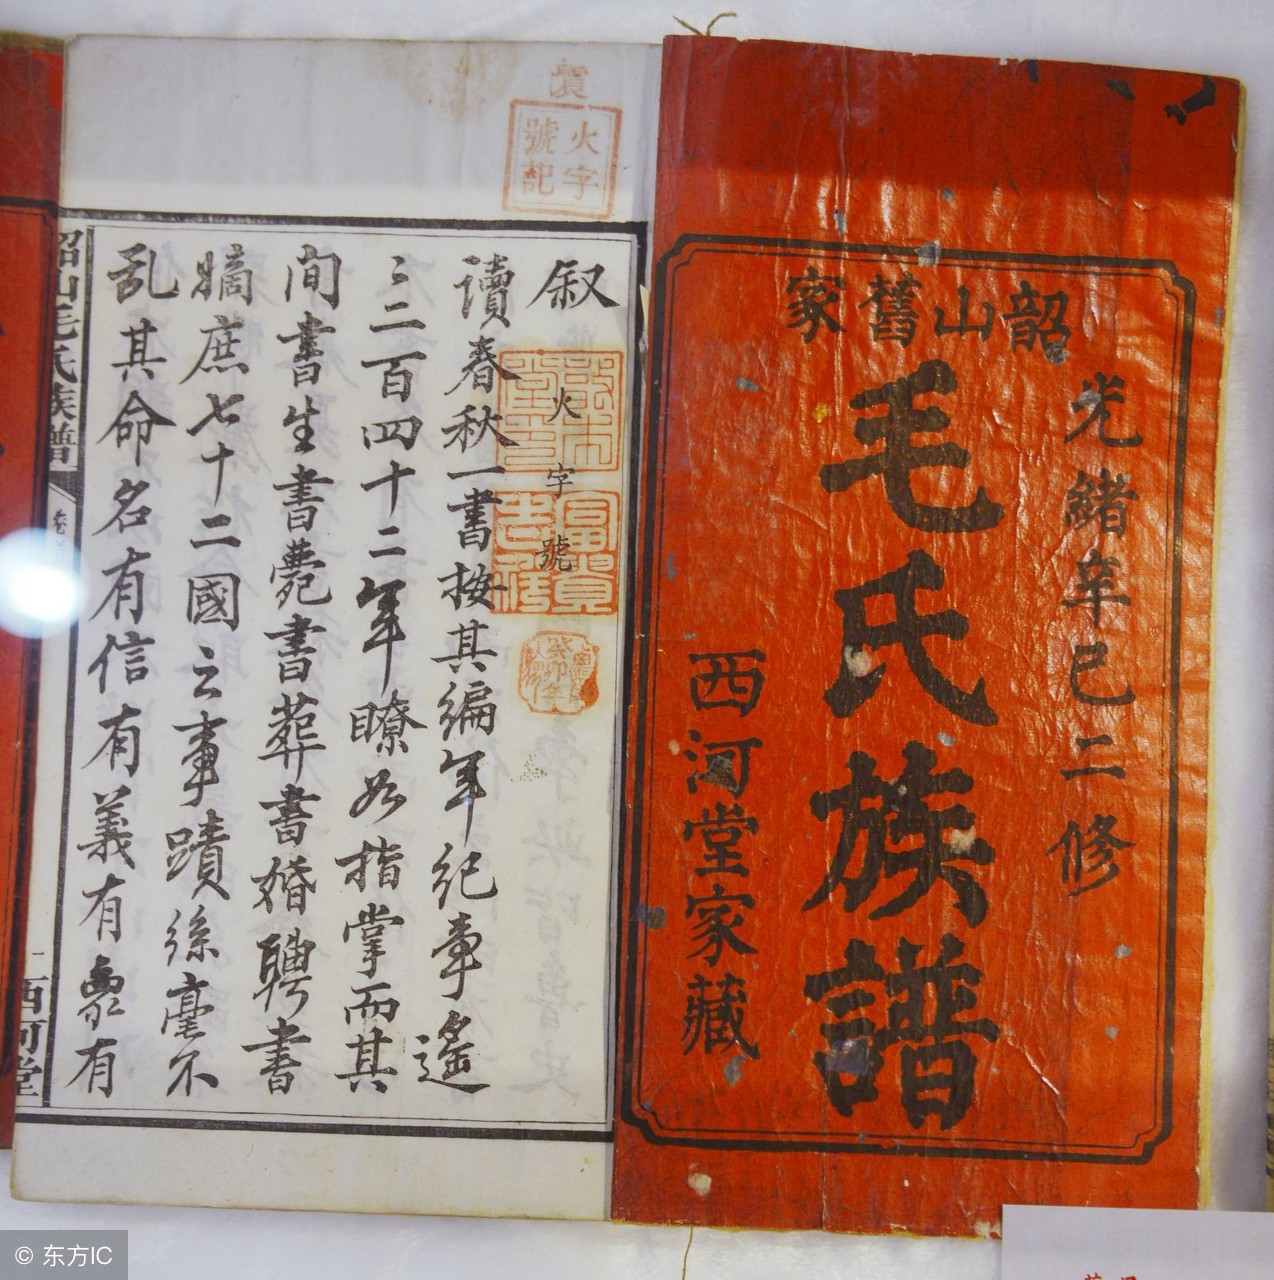 韶山舊家
光緒辛巳二修
毛氏族譜
西河堂家藏
火字
號記
叙
火字號
讀春秋一書按其編年紀章遙
遙二百四十二年瞭如指掌而其
間書生書薨書葬書婚聘書
嫡庶七十二國之事蹟絲毫不
乱其命名有信有義有象有
韶山毛氏族譜
西河堂
© 东方IC